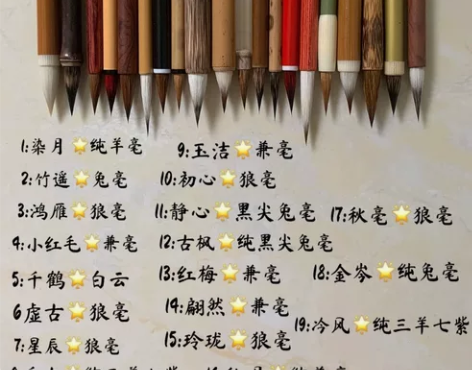 1:染月⭐纯羊毫
2:竹遥⭐兔毫
3:鸿雁⭐狼毫
4:小红毛⭐兼毫
5:千鹤⭐白云
6虚古⭐狼毫
7:星辰⭐狼毫
9:玉洁⭐兼毫
10:初心⭐狼毫
11:静心⭐黑尖兔毫
12:古枫⭐纯黑尖兔毫
13:红梅⭐兼毫
14:翩然⭐兼毫
15:玲珑⭐狼毫
17:秋毫⭐狼毫
18:金岑⭐纯兔毫
19:冷风⭐纯三羊七紫